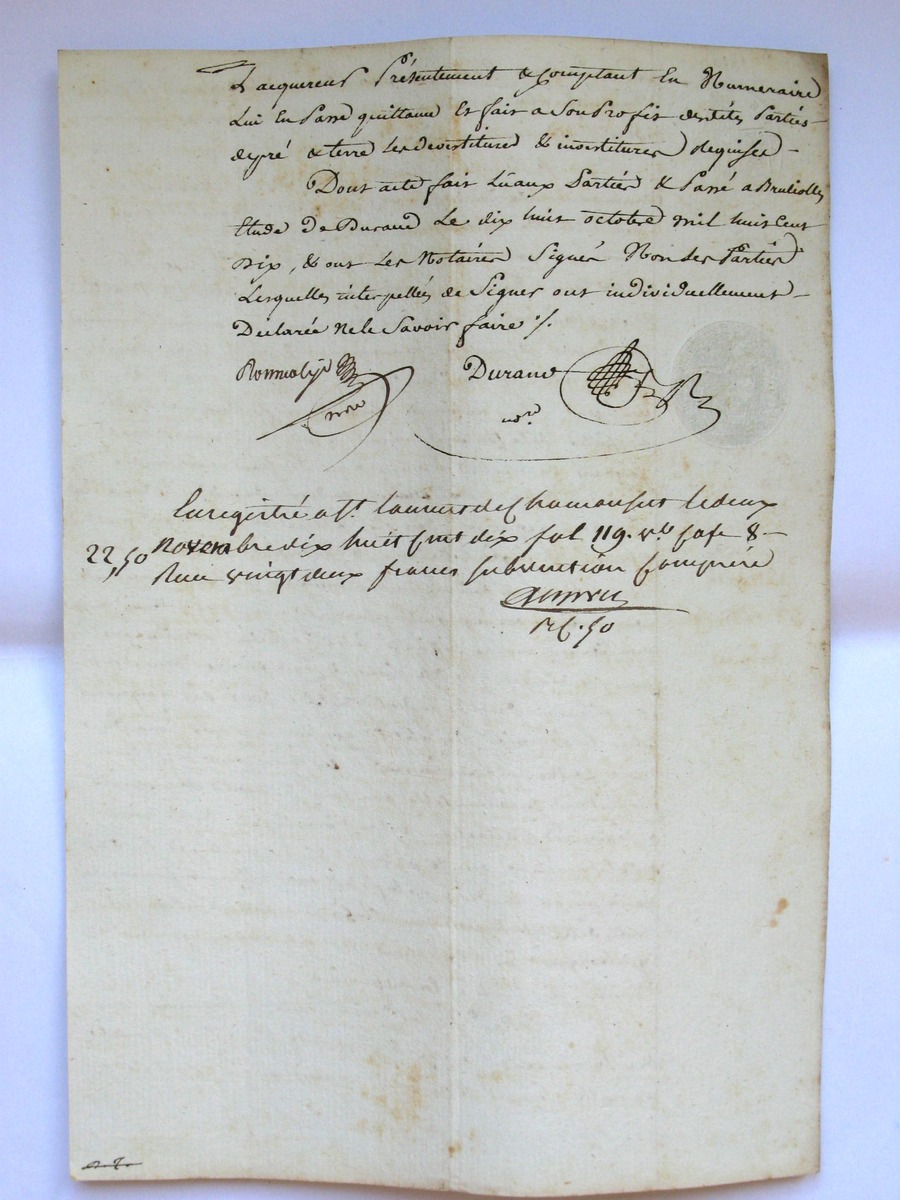 L'acquereur Présentement & Comptant En Numeraire
Lui En Passe quittance Et fait a Son Profit desdites Parties
de pré & terre Les devestitures & investitures Requises
Dont acte fait Lû aux Parties & Passé a Brulioles
Etude De Durand Le dix huit octobre mil huit Cent
Dix, & ont Les Notaires Signés Non Les Parties
Lesquelles interpellées de Signer ont individuellement
Déclarée Ne le Savoir faire ·/.
Durand
nore
no.re
Enregistré a St. Laurent de Chamousset le deux
Novembre dix huit Cent dix fol 119. vo. Case 8
Recu vingt deux francs subvention Comprise
22,50